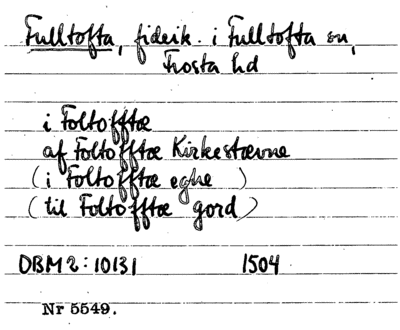 Fulltofta, fideik. i Fulltofta sn,
Frosta hd
i Foltofftæ
af Foltofftæ Kirkestævne
(i Foltofftæ eghe )
(til Foltofftæ gord)
DBM 2:10131 1504
Nr 5549.